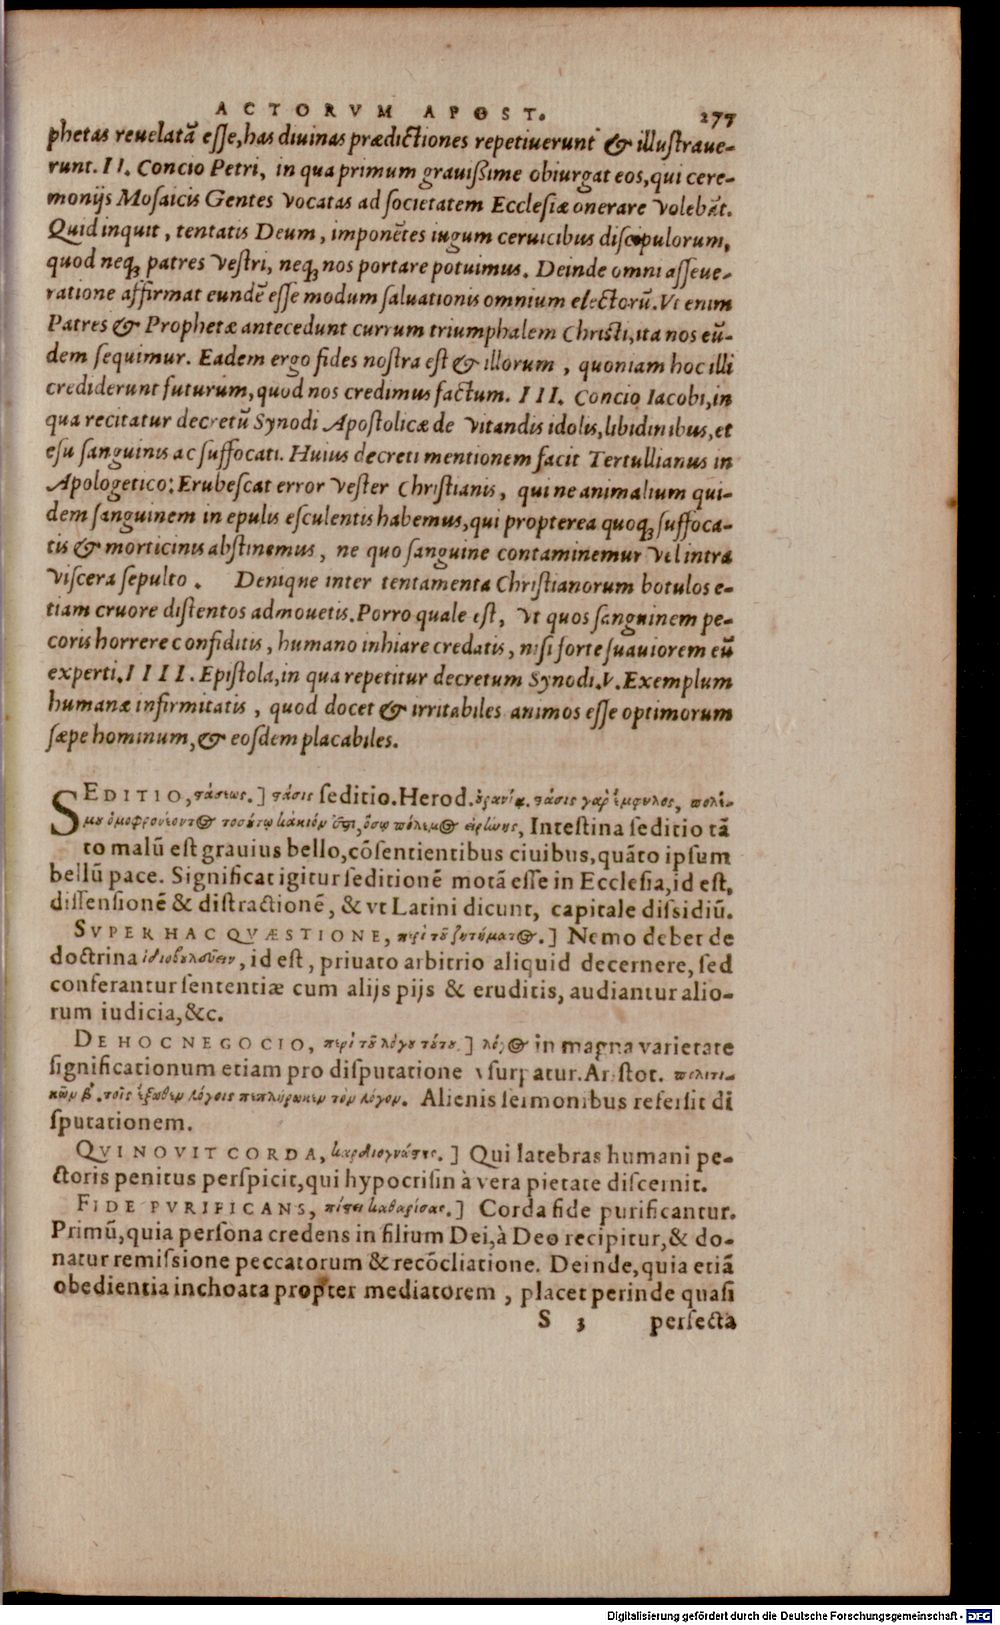 ACTORVM APOST. 277
phetas reuelatā eſſe, has diuinas prædictiones repetiuerunt & illuſtraue-
runt. II. Concio Petri, in qua primum grauiſſime obiurgat eos, qui cere-
monijs Moſaicis Gentes vocatas ad ſocietatem Eccleſiæ onerare volebāt.
Quid inquit, tentatis Deum, imponētes iugum ceruicibus diſcipulorum,
quod neqꝫ patres veſtri, neqꝫ nos portare potuimus. Deinde omni aſſeue-
ratione affirmat eundē eſſe modum ſaluationis omnium electorū. Vt enim
Patres & Prophetæ antecedunt currum triumphalem Chriſti, ita nos eū-
dem ſequimur. Eadem ergo fides noſtra eſt & illorum, quoniam hoc illi
crediderunt futurum, quod nos credimus factum. III. Concio Iacobi, in
qua recitatur decretū Synodi Apoſtolicæ de vitandis idolis, libidinibus, et
eſu ſanguinis ac ſuffocati. Huius decreti mentionem facit Tertullianus in
Apologetico: Erubeſcat error veſter Chriſtianis, qui ne animalium qui-
dem ſanguinem in epulis eſculentis habemus, qui propterea quoqꝫ ſuffoca-
tis & morticinis abſtinemus, ne quo ſanguine contaminemur vel intra
viſcera ſepulto. Denique inter tentamenta Chriſtianorum botulos e-
tiam cruore diſtentos admouetis. Porro quale eſt, vt quos ſanguinem pe-
coris horrere confiditis, humano inhiare credatis, niſi forte ſuauiorem eū
experti. IIII. Epiſtola, in qua repetitur decretum Synodi. V. Exemplum
humanæ infirmitatis, quod docet & irritabiles animos eſſe optimorum
ſæpe hominum, & eoſdem placabiles.
SEDITIO, στάσεως.] στάσις ſeditio. Herod. οὐρανίᾳ. στάσις γαρ ἔμφυλος, πολέ-
μου ὁμοφρονέοντος τοσούτῳ κάκιόν ἐστι, ὅσῳ πόλεμος εἰρήνης, Inteſtina ſeditio tā
to malū eſt grauius bello, cōſentientibus ciuibus, quāto ipſum
bellū pace. Significat igitur ſeditionē motā eſſe in Eccleſia, id eſt,
diſſenſionē & diſtractionē, & vt Latini dicunt, capitale diſsidiū.
SVPER HAC QVÆSTIONE, περὶ τοῦ ζητήματος.] Nemo debet de
doctrina ἰδιοβουλεῖν, id eſt, priuato arbitrio aliquid decernere, ſed
conferantur ſententiæ cum alijs pijs & eruditis, audiantur alio-
rum iudicia, &c.
DE HOC NEGOCIO, περὶ τοῦ λόγου τούτου.] λόγος in magna varietate
ſignificationum etiam pro diſputatione vſurpatur. Ariſtot. πολιτι-
κῶν β. τοῖς ἔξωθεν λόγοις πεπλήρωκεν τὸν λόγον. Alienis ſermonibus referſit di
ſputationem.
QVI NOVIT CORDA, καρδιογνώστης.] Qui latebras humani pe-
ctoris penitus perſpicit, qui hypocriſin à vera pietate diſcernit.
FIDE PVRIFICANS, πίστει καθαρίσας.] Corda fide purificantur.
Primū, quia perſona credens in filium Dei, à Deo recipitur, & do-
natur remiſsione peccatorum & recōciliatione. Deinde, quia etiā
obedientia inchoata propter mediatorem, placet perinde quaſi
S 3 perfecta
Digitalisierung gefördert durch die Deutsche Forschungsgemeinschaft - DFG